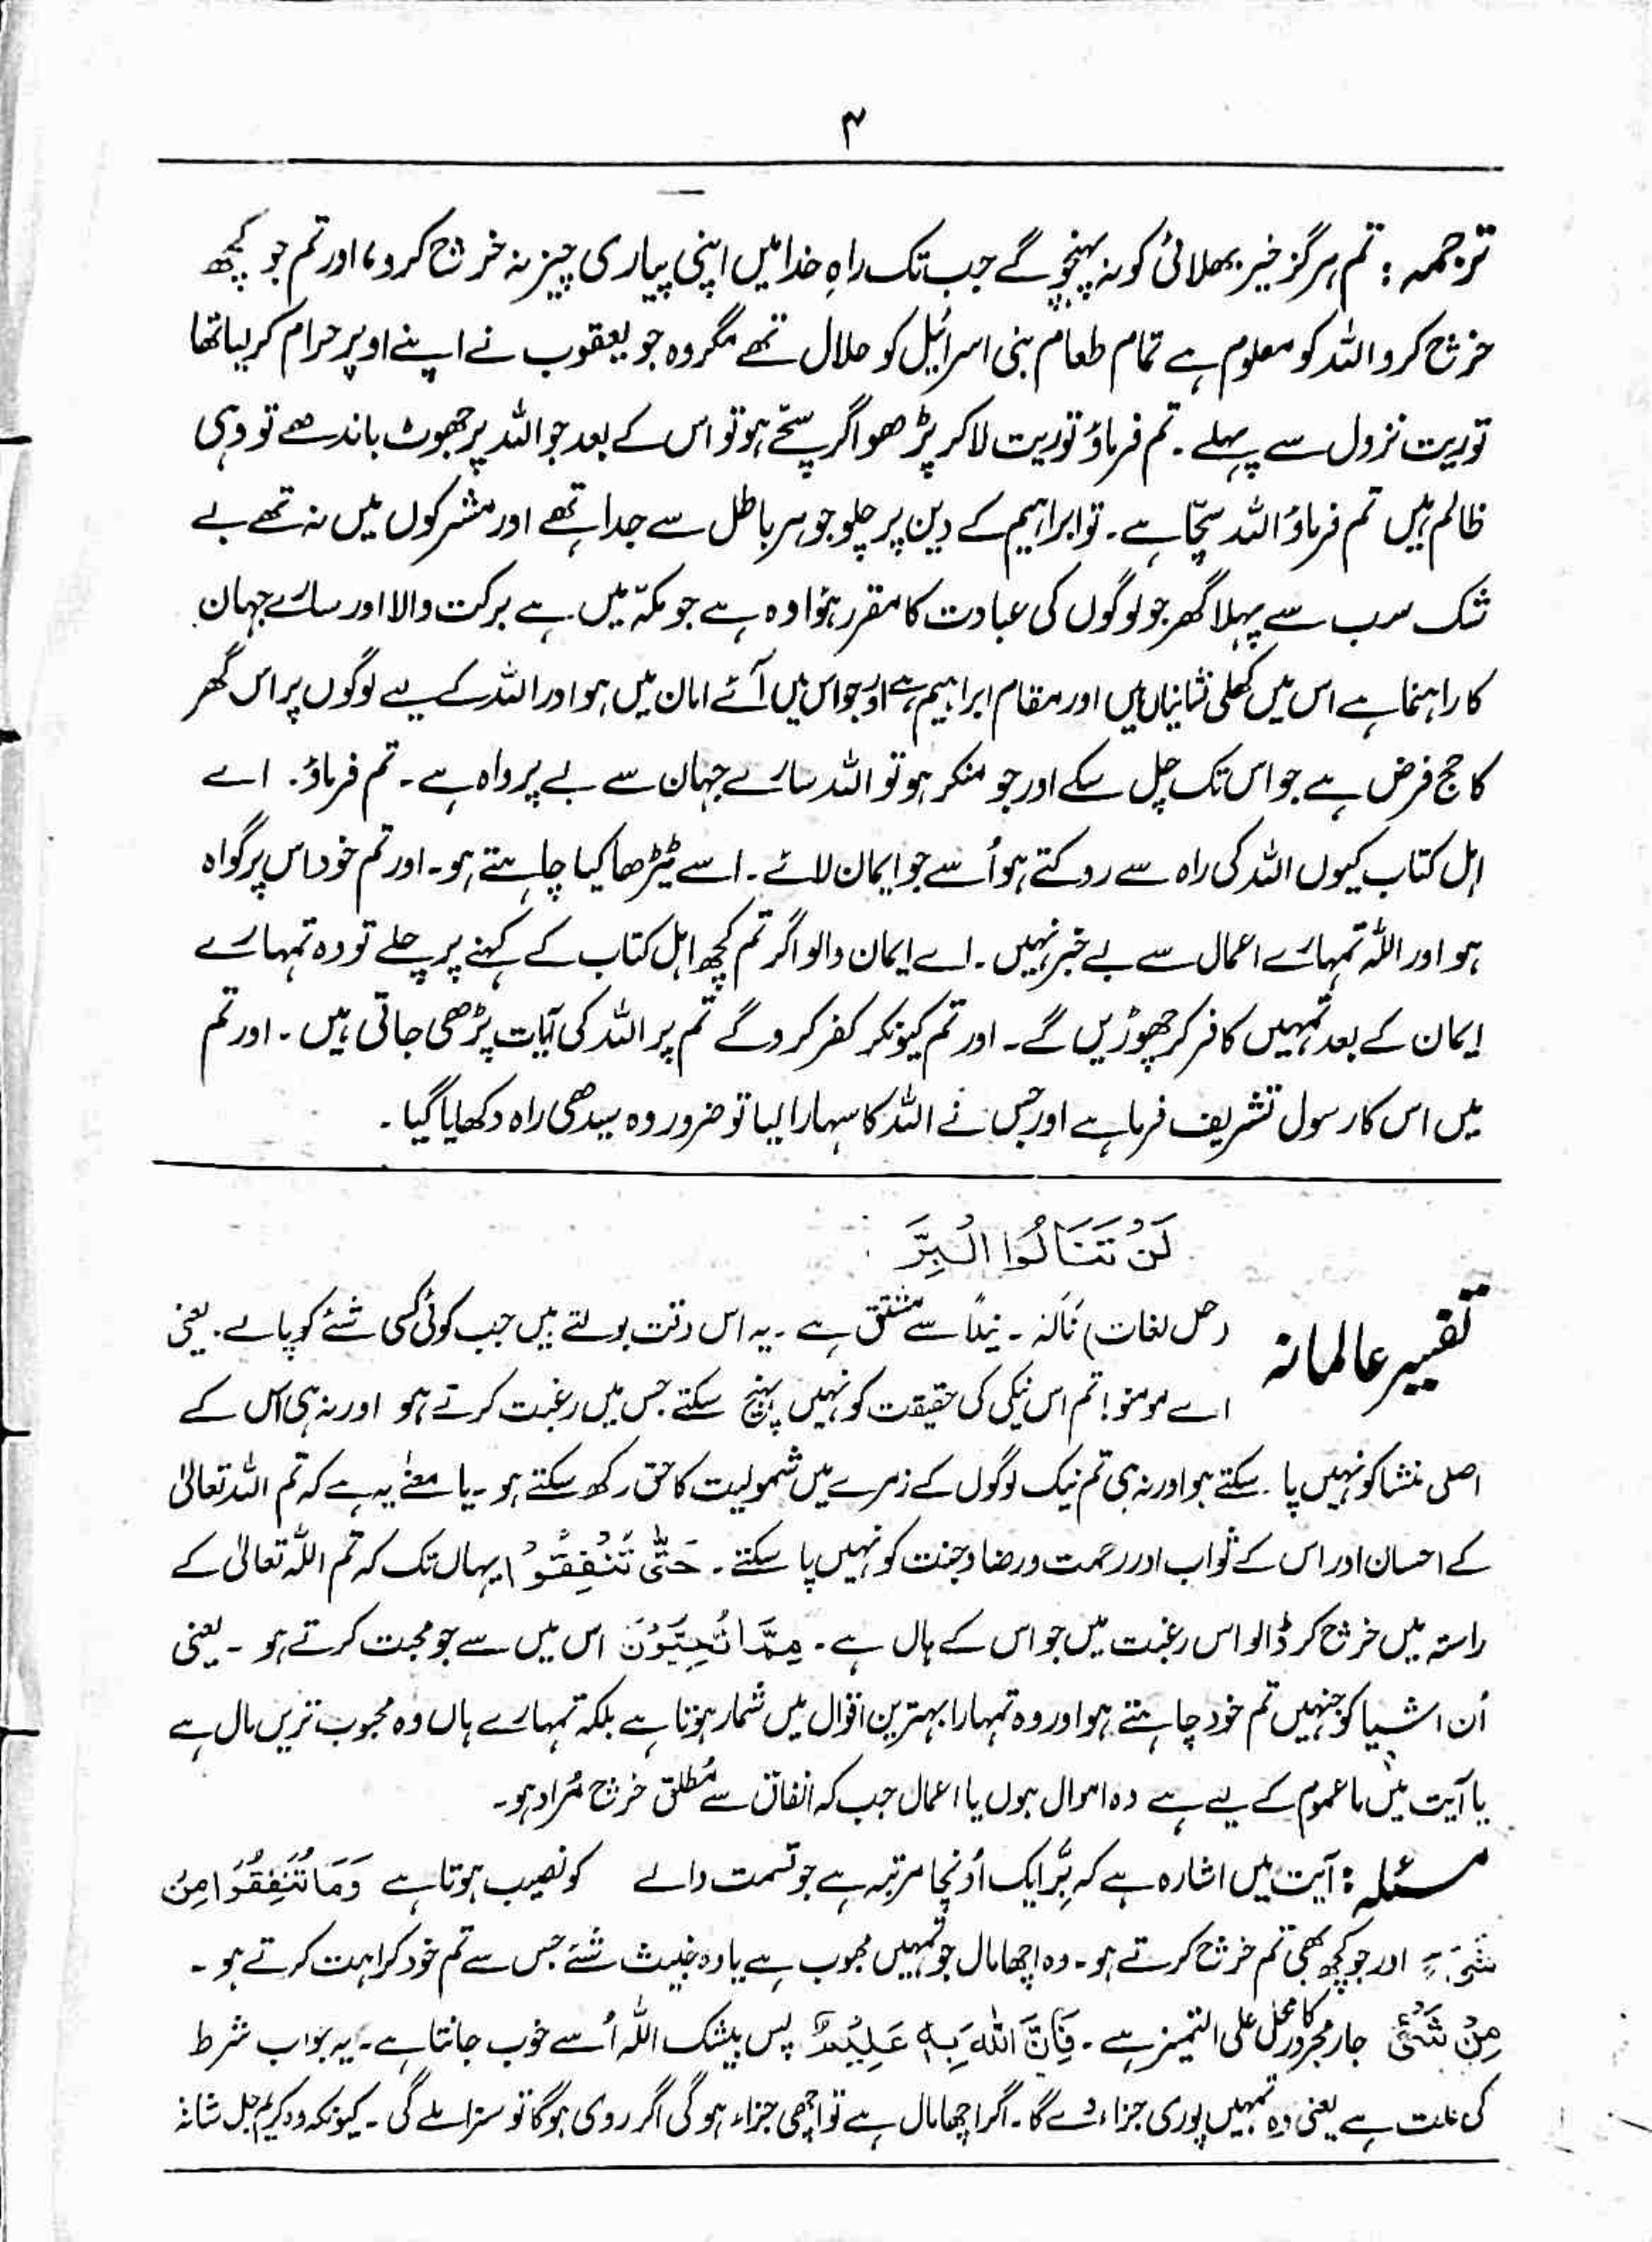 ۴
ترجمہ: تم ہرگز خیر بھلائی کو نہ پہنچو گے جب تک راہِ خدا میں اپنی پیاری چیز نہ خرچ کرو، اور تم جو کچھ
خرچ کرو اللہ کو معلوم ہے تمام طعام بنی اسرائیل کو حلال تھے مگر وہ جو یعقوب نے اپنے اوپر حرام کر لیا تھا
توریت نزول سے پہلے۔ تم فرماؤ توریت لا کر پڑھو اگر سچّے ہو تو اس کے بعد جو اللہ پر جھوٹ باندھے تو وہی
ظالم ہیں تم فرماؤ اللہ سچّا ہے۔ تو ابراہیم کے دین پر چلو جو ہر باطل سے جدا تھے اور مشرکوں میں نہ تھے بے
شک سب سے پہلا گھر جو لوگوں کی عبادت کا مقرر ہوا وہ ہے جو مکّہ میں ہے برکت والا اور سارے جہان
کا راہنما ہے اس میں کھلی نشانیاں ہیں اور مقام ابراہیم ہے اور جو اس میں آئے امان میں ہو اور اللہ کے لیے لوگوں پر اس گھر
کا حج فرض ہے جو اس تک چل سکے اور جو منکر ہو تو اللہ سارے جہان سے بے پرواہ ہے۔ تم فرماؤ۔ اے
اہل کتاب کیوں اللہ کی راہ سے روکتے ہو اُسے جو ایمان لائے۔ اسے ٹیڑھا کیا چاہتے ہو۔ اور تم خود اس پر گواہ
ہو اور اللہ تمہارے اعمال سے بے خبر نہیں۔ اے ایمان والو اگر تم کچھ اہل کتاب کے کہنے پر چلے تو وہ تمہارے
ایمان کے بعد تمہیں کافر کر چھوڑیں گے۔ اور تم کیونکر کفر کرو گے تم پر اللہ کی آیات پڑھی جاتی ہیں۔ اور تم
میں اس کا رسول تشریف فرما ہے اور جس نے اللہ کا سہارا لیا تو ضرور وہ سیدھی راہ دکھایا گیا۔
لَنْ تَنَالُوا الْبِرَّ
تفسیر عالمانہ
(حل لغات) نَالَہٗ۔ نیلًا سے مشتق ہے۔ یہ اس وقت بولتے ہیں جب کوئی کسی شئے کو پالے۔ یعنی
اے مومنو! تم اس نیکی کی حقیقت کو نہیں پہنچ سکتے جس میں رغبت کرتے ہو اور نہ ہی اس کے
اصلی منشا کو نہیں پا سکتے ہو اور نہ ہی تم نیک لوگوں کے زمرے میں شمولیت کا حق رکھ سکتے ہو۔ یا معنٰے یہ ہے کہ تم اللہ تعالیٰ
کے احسان اور اس کے ثواب اور رحمت و رضا و جنت کو نہیں پا سکتے۔ حَتّٰی تُنْفِقُوْا یہاں تک کہ تم اللہ تعالیٰ کے
راستہ میں خرچ کر ڈالو اس رغبت میں جو اس کے ہاں ہے۔ مِمَّا تُحِبُّوْنَ اس میں سے جو محبت کرتے ہو۔ یعنی
اُن اشیا کو جنہیں تم خود چاہتے ہو اور وہ تمہارا بہترین اقوال میں شمار ہوتا ہے بلکہ تمہارے ہاں وہ محبوب ترین مال ہے
یا آیت میں ما عموم کے لیے ہے وہ اموال ہوں یا اعمال جب کہ انفاق سے مُطلق خرچ مُراد ہو۔
مسئلہ: آیت میں اشارہ ہے کہ بِرّ ایک اُونچا مرتبہ ہے جو قسمت والے کو نصیب ہوتا ہے وَمَا تُنْفِقُوْا مِنْ
شَیْءٍ اور جو کچھ بھی تم خرچ کرتے ہو۔ وہ اچھا مال جو تمہیں محبوب ہے یا وہ خبیث شئے جس سے تم خود کراہت کرتے ہو۔
مِنْ شَیْءٍ جار مجرور کا محل علی التمیز ہے۔ فَاِنَّ اللّٰہَ بِہٖ عَلِیْمٌ پس بیشک اللہ اُسے خوب جانتا ہے۔ یہ جواب شرط
کی علت ہے یعنی وہ تمہیں پوری جزاء دے گا۔ اگر اچھا مال ہے تو اچھی جزاء ہو گی اگر ردی ہو گا تو سزا ملے گی۔ کیونکہ وہ کریم جل شانہٗ